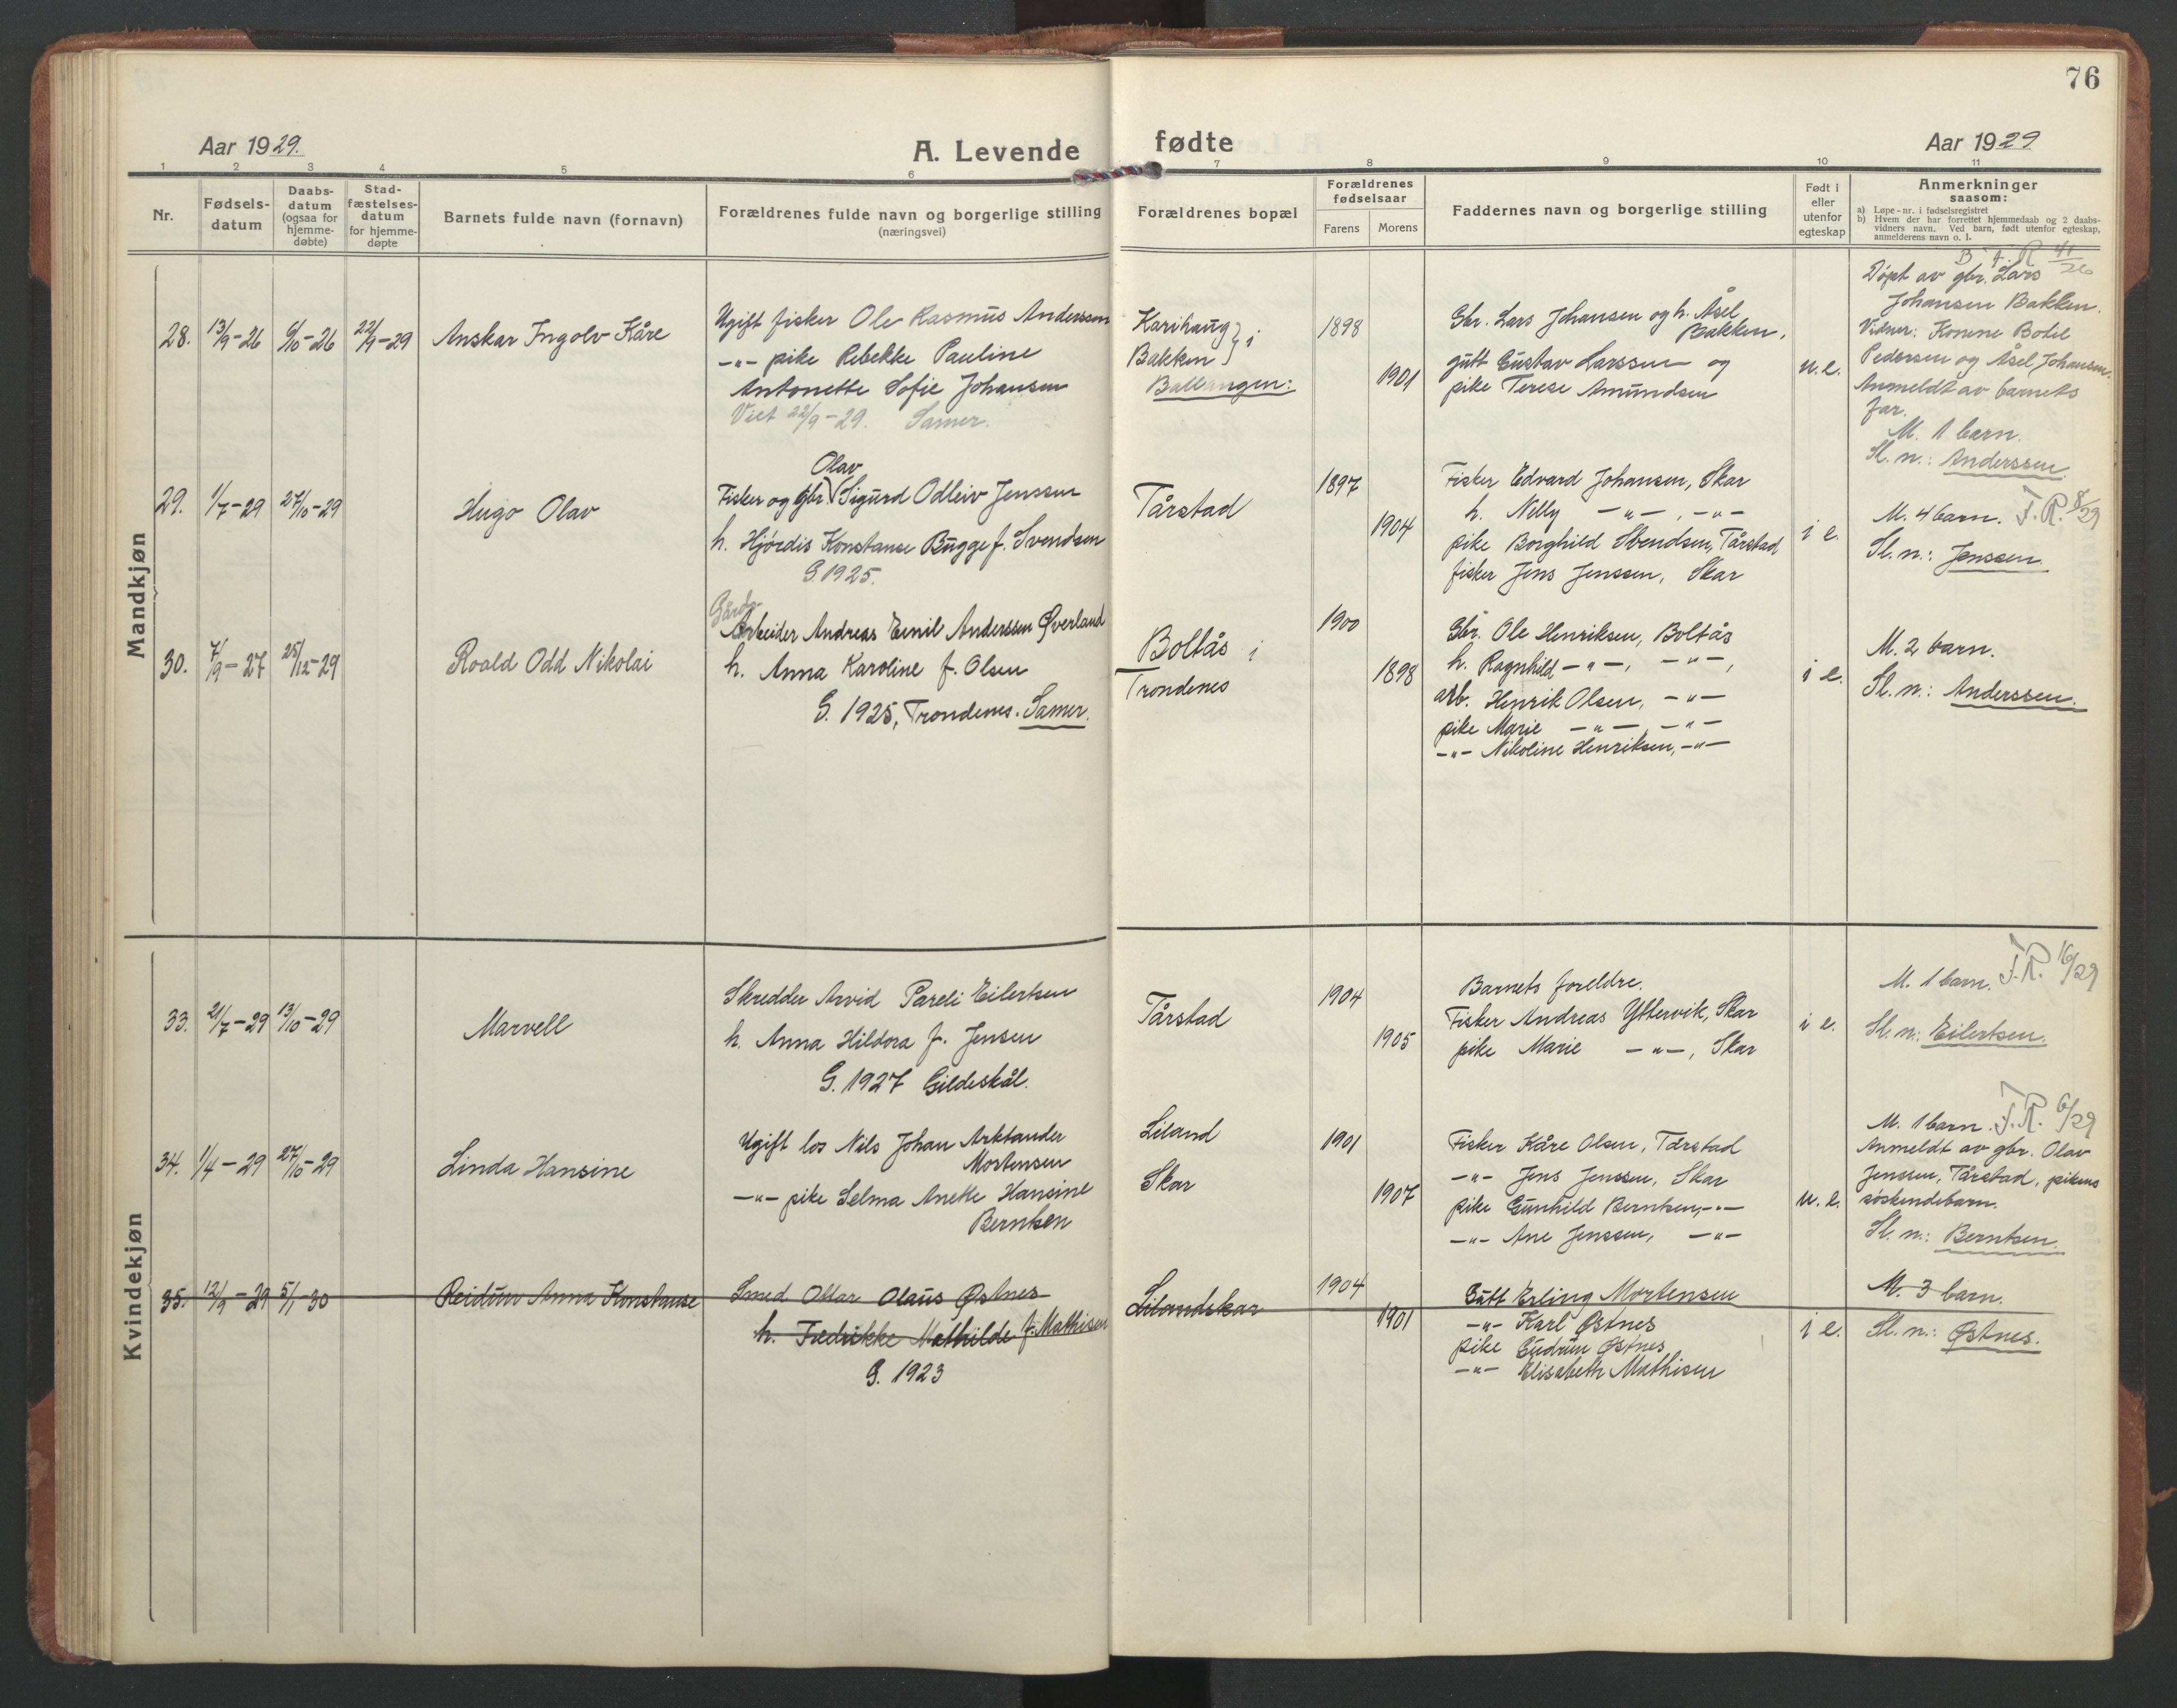 76
Aar 1929.
A. Levende fødte
Aar 1929
1 2 3 4 5 6 7 8 9 10 11
Nr.
Fødsels-
datum
Daabs-
datum
(ogsaa for
hjemme-
døbte)
Stad-
fæstelses-
datum
for hjemme-
døpte
Barnets fulde navn (fornavn)
Forældrenes fulde navn og borgerlige stilling
(næringsvei)
Forældrenes bopæl
Forældrenes
fødselsaar
Farens Morens
Faddernes navn og borgerlige stilling
Født i
eller
utenfor
egteskap
Anmerkninger
saasom:
a) Løpe-nr. i fødselsregistret
b) Hvem der har forrettet hjemmedaab og 2 daabs-
vidners navn. Ved barn, født utenfor egteskap,
anmelderens navn o. l.
Mandkjøn
28. 13/9-26 6/10-26 22/9-29 Anskar Ingolv Kåre
Ugift fisker Ole Rasmus Anderssen
-"- pike Rebekke Pauline
Antonette Sofie Johansen
Viet 22/9-29. Samer.
Karihaug } i
Bakken
Ballangen:
1898
1901
Gbr. Lars Johansen og h. Åsel
Bakken.
gutt Gustav Larssen og
pike Terese Amundsen
u.e.
B. f. R 41/26
Døpt av gbr. Lars
Johansen Bakken.
Vidner: Konene Botel
Pedersen og Åsel Johansen.
Anmeldt av barnets
far.
M. 1 barn.
Sl. n.: Anderssen.
29. 1/7-29 27/10-29 Hugo Olav
Olav
Fisker og gbr Sigurd Odleiv Jenssen
h. Hjördis Konstanse Bugge f. Svendsen
G. 1925.
Tårstad
1897
1904
Fisker Edvard Johansen, Skar
h. Nilly -"-, -"-
pike Borghild Svendsen, Tårstad
fisker Jens Jenssen, Skar
i e.
M. 4 barn. F.R. 8/29
Sl. n.: Jenssen.
30. 7/9-27 25/12-29 Roald Odd Nikolai
Gårds
Arbeider Andreas Emil Anderssen Øverland
h. Anna Karoline f. Olsen
G. 1925, Trondenes. Samer.
Boltås i
Trondenes
1900
1898
Gbr. Ole Henriksen, Boltås
h. Ragnhild -"-, -"-,
arb. Henrik Olsen, -"-
pike Marie -"-, -"-
-"- Nikoline Henriksen, -"-
i e.
M. 2 barn.
Sl. n.: Anderssen.
Kvindekjøn
33. 21/7-29 13/10-29 Marvell
Skredder Arvid Pareli Eilertsen
h. Anna Hildora f. Jensen
G. 1927 Gildeskål.
Tårstad
1904
1905
Barnets foreldre.
Fisker Andreas Yttervik, Skar
pike Marie -"-, Skar
i e.
M. 1 barn. F.R. 16/29
Sl. n: Eilertsen.
34. 1/4-29 27/10-29 Linda Hansine
Ugift los Nils Johan Arktander
Mortensen
-"- pike Selma Anette Hansine
Berntsen
Liland
Skar
1901
1907
Fisker Kåre Olsen, Tårstad
-"- Jens Jenssen, Skar
pike Gunhild Berntsen, -"-
-"- Ane Jenssen, -"-
u. e.
M. 1 barn. F.R. 6/29
Anmeldt av gbr. Olav
Jenssen, Tårstad, pikens
söskendebarn.
Sl. n.: Berntsen.
35. 12/9-29 5/1-30 Reidun Anna Konstanse
Smed Ottar Olaus Østnes
h. Fredrikke Mathilde f. Mathisen
G. 1923
Lilandskar
1904
1901
Gutt Erling Mortensen
-"- Karl Østnes
pike Gudrun Østnes
-"- Elisabeth Mathisen
i e.
M. 3 barn.
Sl. n.: Østnes.